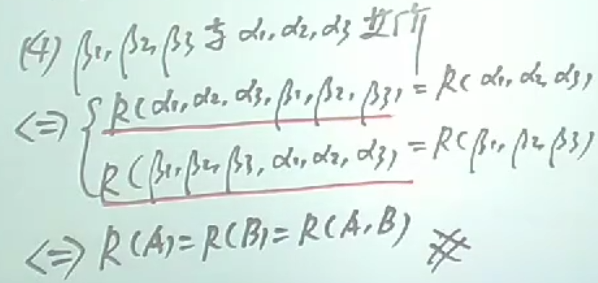 (4) β1, β2, β3 与 α1, α2, α3 互
<=> { R(α1, α2, α3, β1, β2, β3) = R(α1, α2, α3)
R(β1, β2, β3, α1, α2, α3) = R(β1, β2, β3)
<=> R(A) = R(B) = R(A, B) #